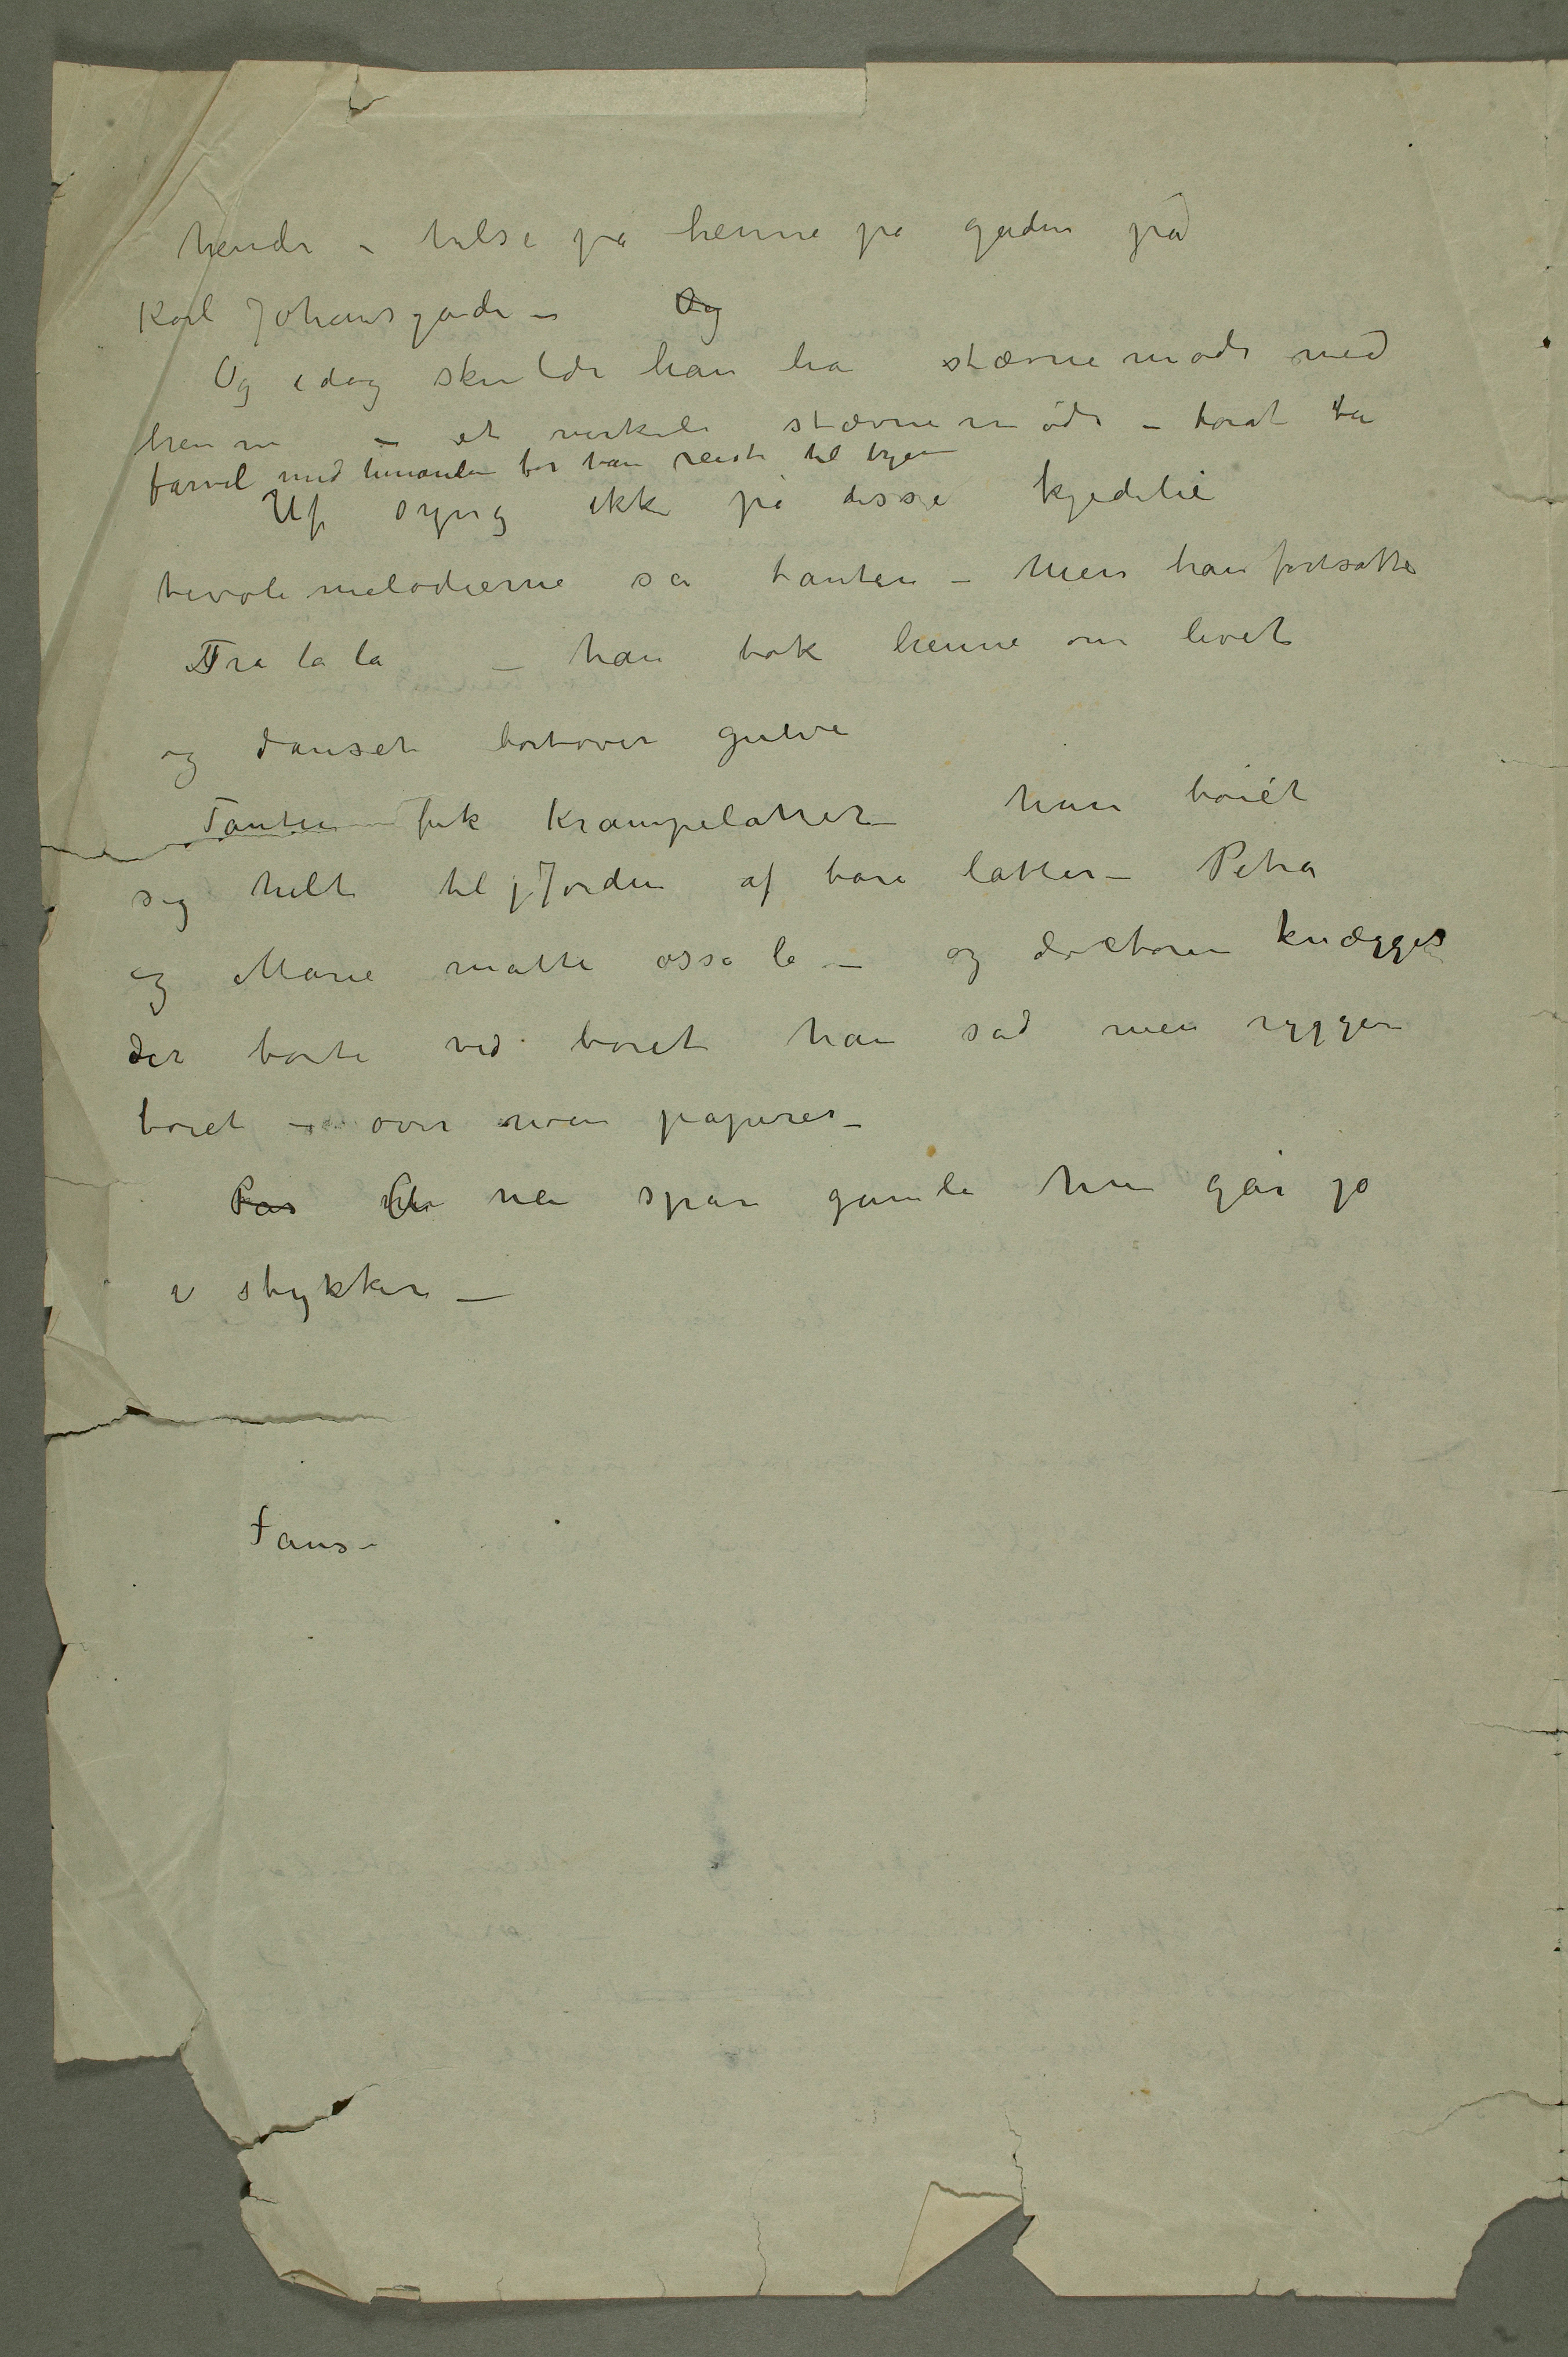 hende – hilse på henne på gaden på
Karl Johansgade – Og
Og idag skulde han ha stævnemøde med
henne – et virkeli stævnemöde – forat ta
farvel med hinanden før han reiste til byen
Uf syng ikke på disse kjedelie
tivolimelodierne sa tanten – Men han fortsatte
Tra la la – han tok henne om livet
og danset bortover gulve
Tanten fik Krampelatter – hun bøiet
sig helt til jJorden af bare latter – Petra
og Marie måtte osså le – og doctoren knægget
der borte ved boret han sad men ryggen
bøiet – over noen papirer –
Pas nei spar gamle hun går jo
i stykker –
Fans –